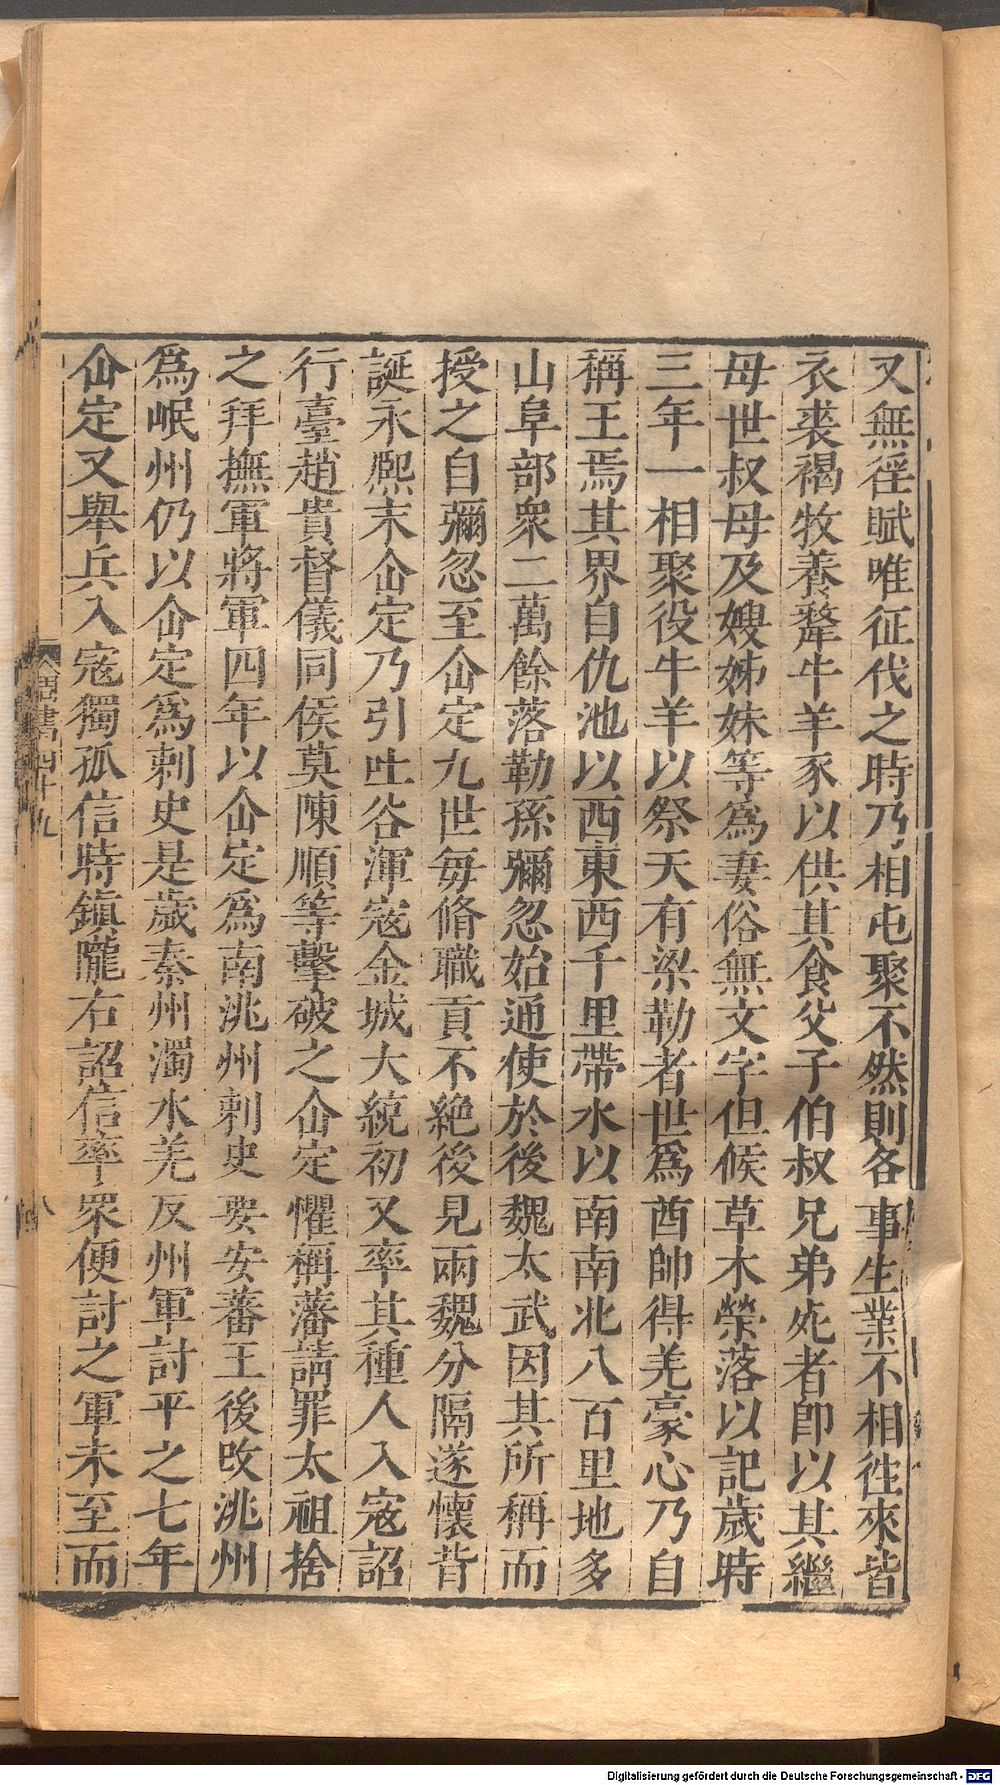 又無徭賦唯征伐之時乃相屯聚不然則各事生業不相徃來皆
衣裘褐牧養犛牛羊豕以供其食父子伯叔兄弟死者卽以其繼
母世叔母及嫂姊妹等爲妻俗無文字但候草木榮落以記歲時
三年一相聚役牛羊以祭天有梁勒者世爲酋帥得羌豪心乃自
稱王焉其界自仇池以西東西千里帶水以南南北八百里地多
山阜部衆二萬餘落勒孫彌忽始通使於後魏太武因其所稱而
授之自彌忽至仚定九世每脩職貢不絕後見兩魏分隔遂懷背
誕永熙末仚定乃引吐谷渾寇金城大統初又率其種人入寇詔
行臺趙貴督儀同侯莫陳順等擊破之仚定懼稱藩請罪太祖捨
之拜撫軍將軍四年以仚定爲南洮州刺史要安蕃王後改洮州
爲岷州仍以仚定爲刺史是歲秦州濁水羌反州軍討平之七年
仚定又舉兵入寇獨孤信時鎮隴右詔信率眾便討之軍未至而
周書四十九
八
Digitalisierung gefördert durch die Deutsche Forschungsgemeinschaft - DFG